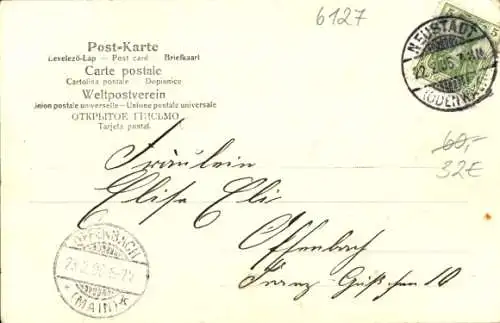 6127
Post-Karte
Levelező-Lap — Post card — Briefkaart
Carte postale
Cartolina postale — Dopisnice
Weltpostverein
Union postale universelle — Unione postale universale
ОТКРЫТОЕ ПИСЬМО
Tarjeta postal.
NEUSTADT
(ODENWALD)
5
60,-
32€
Fräulein
Elise Eli
Offenbach
Franz 10
OFFENBACH
(MAIN) K